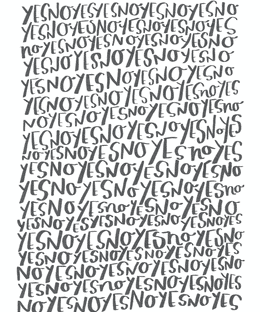 YESNOYESYESNOYESNOYES
YESNOYESNOYESNOYESNO
noYESNOYESNOYESNOYESNO
YESNOYESNOYESNOYESNO
YESNOYESNOYESNOYESNO
YESNOYESNOYESNOYESNO
YESNOYESNOYESNOYESno
NOYESNOYESNOYESNOYES
YESNOYESNOYESNOYESNO
NOYESNOYESNOYES noYES
YESNOYESNOYESNOYESNO
YESNOYESNOYESNOYESno
YESNOYESnoYESNOYESNO
YESNOYESNOYESNOYESNOYES
YESNOYESNOYESnoYESNO
NOYESNOYESNOYESNOYES
NOYESNOYESNOYESNOYESNO
NOYESnoYESNOYESNOYES
YESNOYESNOYESNOYESNO